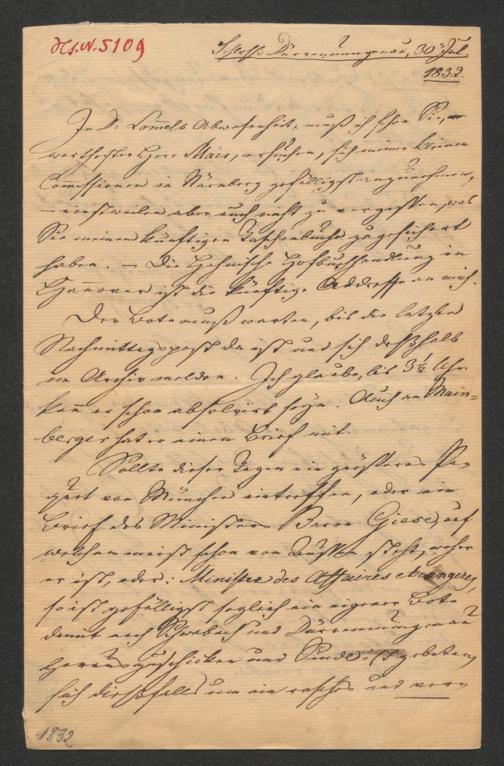 Hs.N.5109
Schloß Dürrenmungenau, 30 Jul
1832.
In Dr. Lommels Abwesenheit, muß ich schon Sie,
werthester Herr Mair, ersuchen, sich meiner kleinen
Comissionen in Nürnberg gefälligst anzunehmen,
– einstweilen aber auch nicht zu vergessen, was
Sie meinem künftigen Taschenbuche zugesichert
haben. – Die Hahnische Hofbuchhandlung in
Hanover ist die künftige Addresse an mich.
Der Bote muß warten, bis die letzte
Nachmittagspost da ist und sich deßhalb
im Archiv melden. Ich glaube, bis 3 ½ Uhr
kann er schon absolvirt seyn. Auch an Main=
berger hat er einen Brief mit.
Sollte dieser Tagen ein größeres Pa=
quet von München eintreffen, oder ein
Brief des Ministers Baron Giese, auf
welchem meist schon von Außen steht, woher
er ist, oder: Ministre des Affaires étrangeres,
so ist gefälligst sogleich ein eigener Bote
damit nach Schwabach und Dürrenmungenau
herauszuschicken und
sich dießfalls um ein rasches und
1832